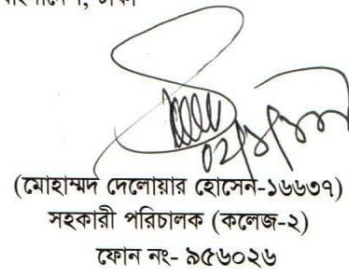 (মোহাম্মদ দেলোয়ার হোসেন-১৬৬৩৭)
সহকারী পরিচালক (কলেজ-২)
ফোন নং- ৯৫৬০২৬